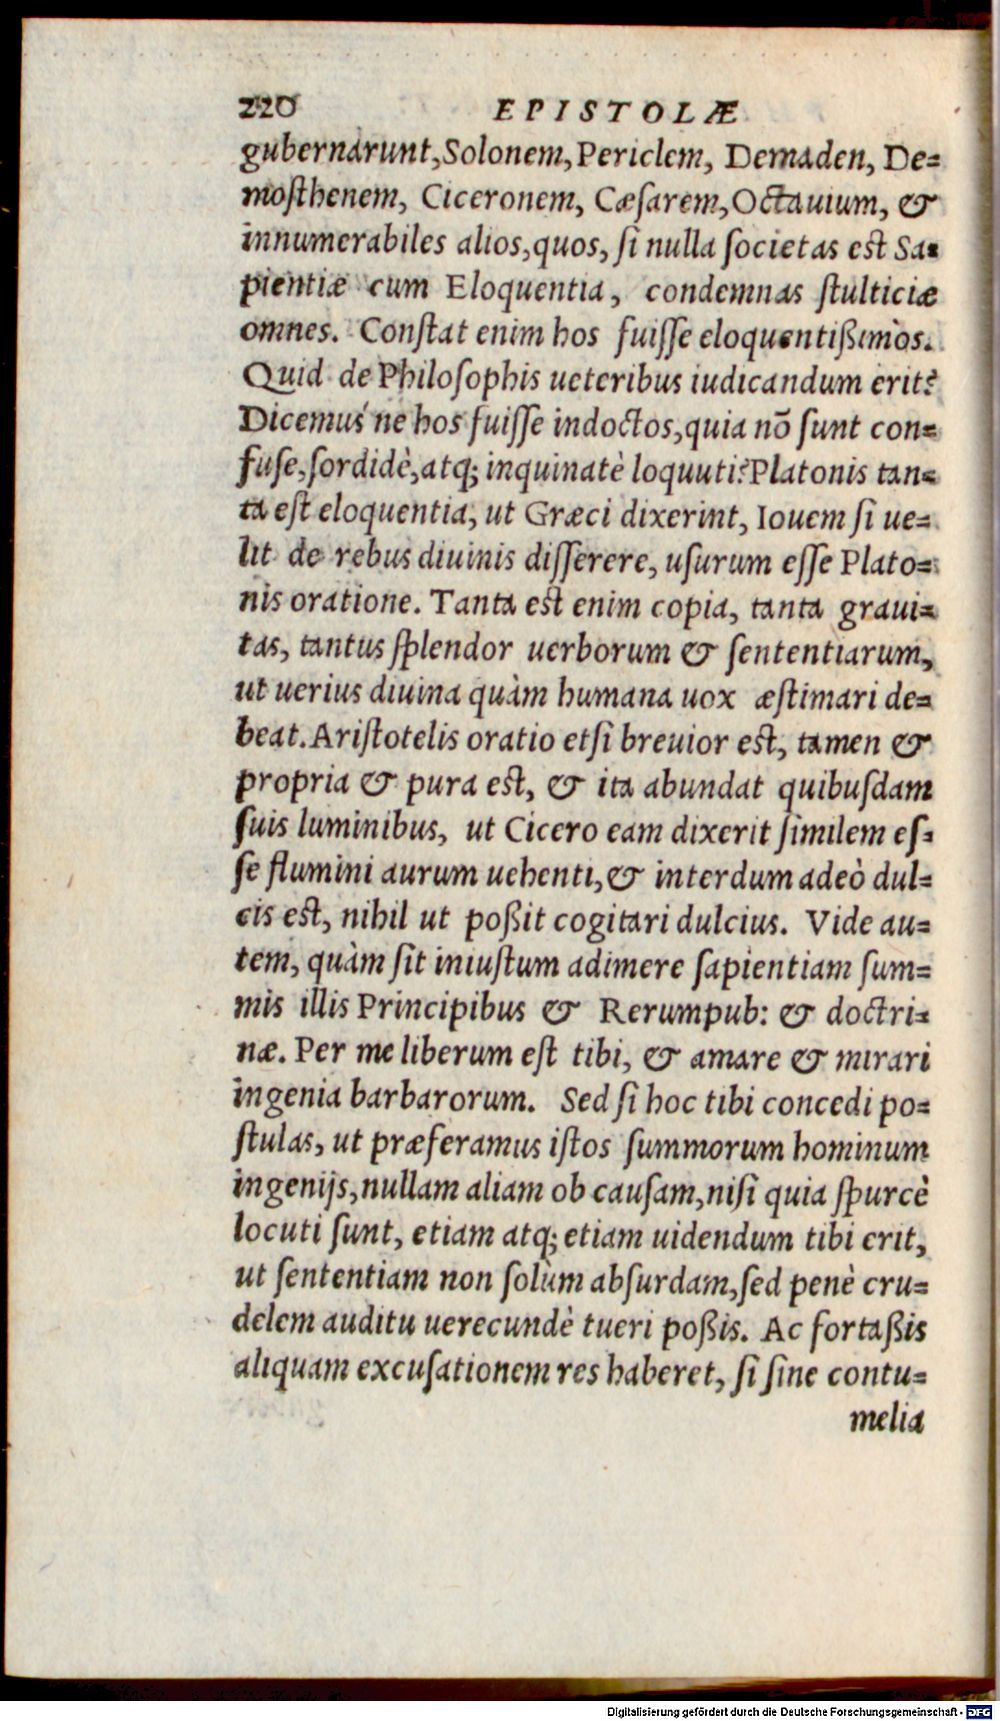 220 EPISTOLÆ
gubernarunt, Solonem, Periclem, Demaden, De=
mosthenem, Ciceronem, Cæsarem, Octauium, &
innumerabiles alios, quos, si nulla societas est Sa=
pientiæ cum Eloquentia, condemnas stulticiæ
omnes. Constat enim hos fuisse eloquentißimos.
Quid de Philosophis ueteribus iudicandum erit?
Dicemus ne hos fuisse indoctos, quia nõ sunt con=
fuse, sordidè, atq; inquinatè loquuti? Platonis tan=
ta est eloquentia, ut Græci dixerint, Iouem si ue=
lit de rebus diuinis disserere, usurum esse Plato=
nis oratione. Tanta est enim copia, tanta graui=
tas, tantus splendor uerborum & sententiarum,
ut uerius diuina quàm humana uox æstimari de=
beat. Aristotelis oratio etsi breuior est, tamen &
propria & pura est, & ita abundat quibusdam
suis luminibus, ut Cicero eam dixerit similem es=
se flumini aurum uehenti, & interdum adeò dul=
cis est, nihil ut poßit cogitari dulcius. Vide au=
tem, quàm sit iniustum adimere sapientiam sum=
mis illis Principibus & Rerumpub: & doctri=
næ. Per me liberum est tibi, & amare & mirari
ingenia barbarorum. Sed si hoc tibi concedi po=
stulas, ut præferamus istos summorum hominum
ingenijs, nullam aliam ob causam, nisi quia spurcè
locuti sunt, etiam atq; etiam uidendum tibi erit,
ut sententiam non solùm absurdam, sed penè cru=
delem auditu uerecundè tueri poßis. Ac fortaßis
aliquam excusationem res haberet, si sine contu=
melia
Digitalisierung gefördert durch die Deutsche Forschungsgemeinschaft - DFG